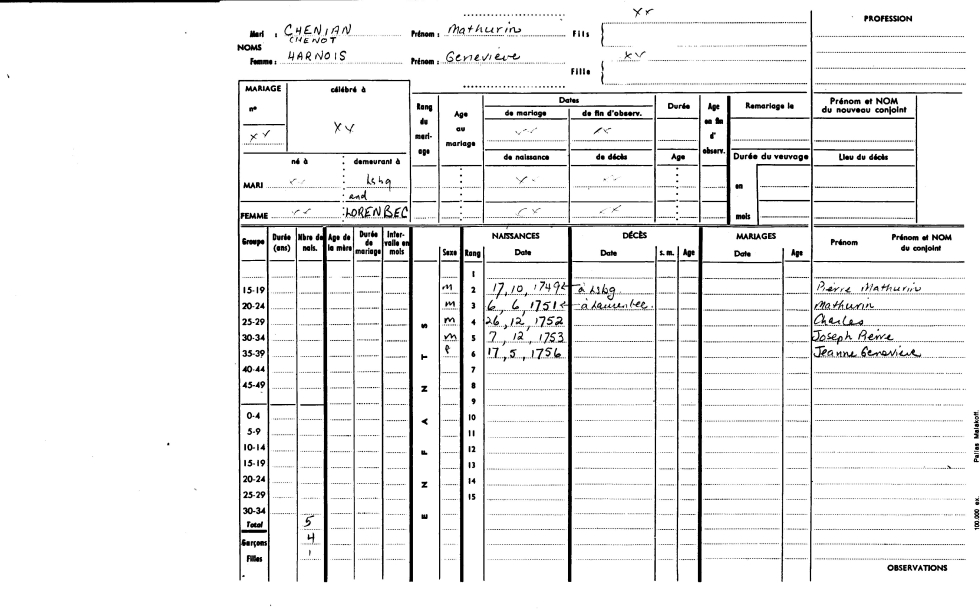 xx
PROFESSION
Mari : CHENIAN Prénom : Mathurin Fils
CHENOT
NOMS
Femme : HARNOIS Prénom : Genevieve xx
Fille
MARIAGE célébré à
n°
xx xx
Rang du mari- age
Age au mariage
Dates
de mariage de fin d'observ.
xx xx
Durée
Age en fin d' observ.
Remariage le
Prénom et NOM du nouveau conjoint
né à demeurant à
de naissance de décès Age Durée du veuvage Lieu du décès
MARI xx Lsbg xx xx en
and
FEMME xx LORENBEC xx xx mois
Groupe Durée (ans) Nbre de nais. Age de la mère Durée de mariage Inter- valle en mois
ENFANTS
NAISSANCES DÉCÈS MARIAGES
Sexe Rang Date Date s. m. Age Date Age Prénom Prénom et NOM du conjoint
1
15-19 m 2 17, 10, 1749 à Lsbg. Pierre Mathurin
20-24 m 3 6, 6, 1751 à Laurenbec. Mathurin
25-29 m 4 26, 12, 1752 Charles
30-34 m 5 7, 12, 1753 Joseph Pierre
35-39 f 6 17, 5, 1756 Jeanne Genevieve
40-44 7
45-49 8
9
0-4 10
5-9 11
10-14 12
15-19 13
20-24 14
25-29 15
30-34
Total 5
Garçons 4
Filles 1
OBSERVATIONS
100.000 ex. Pallas Malakoff.